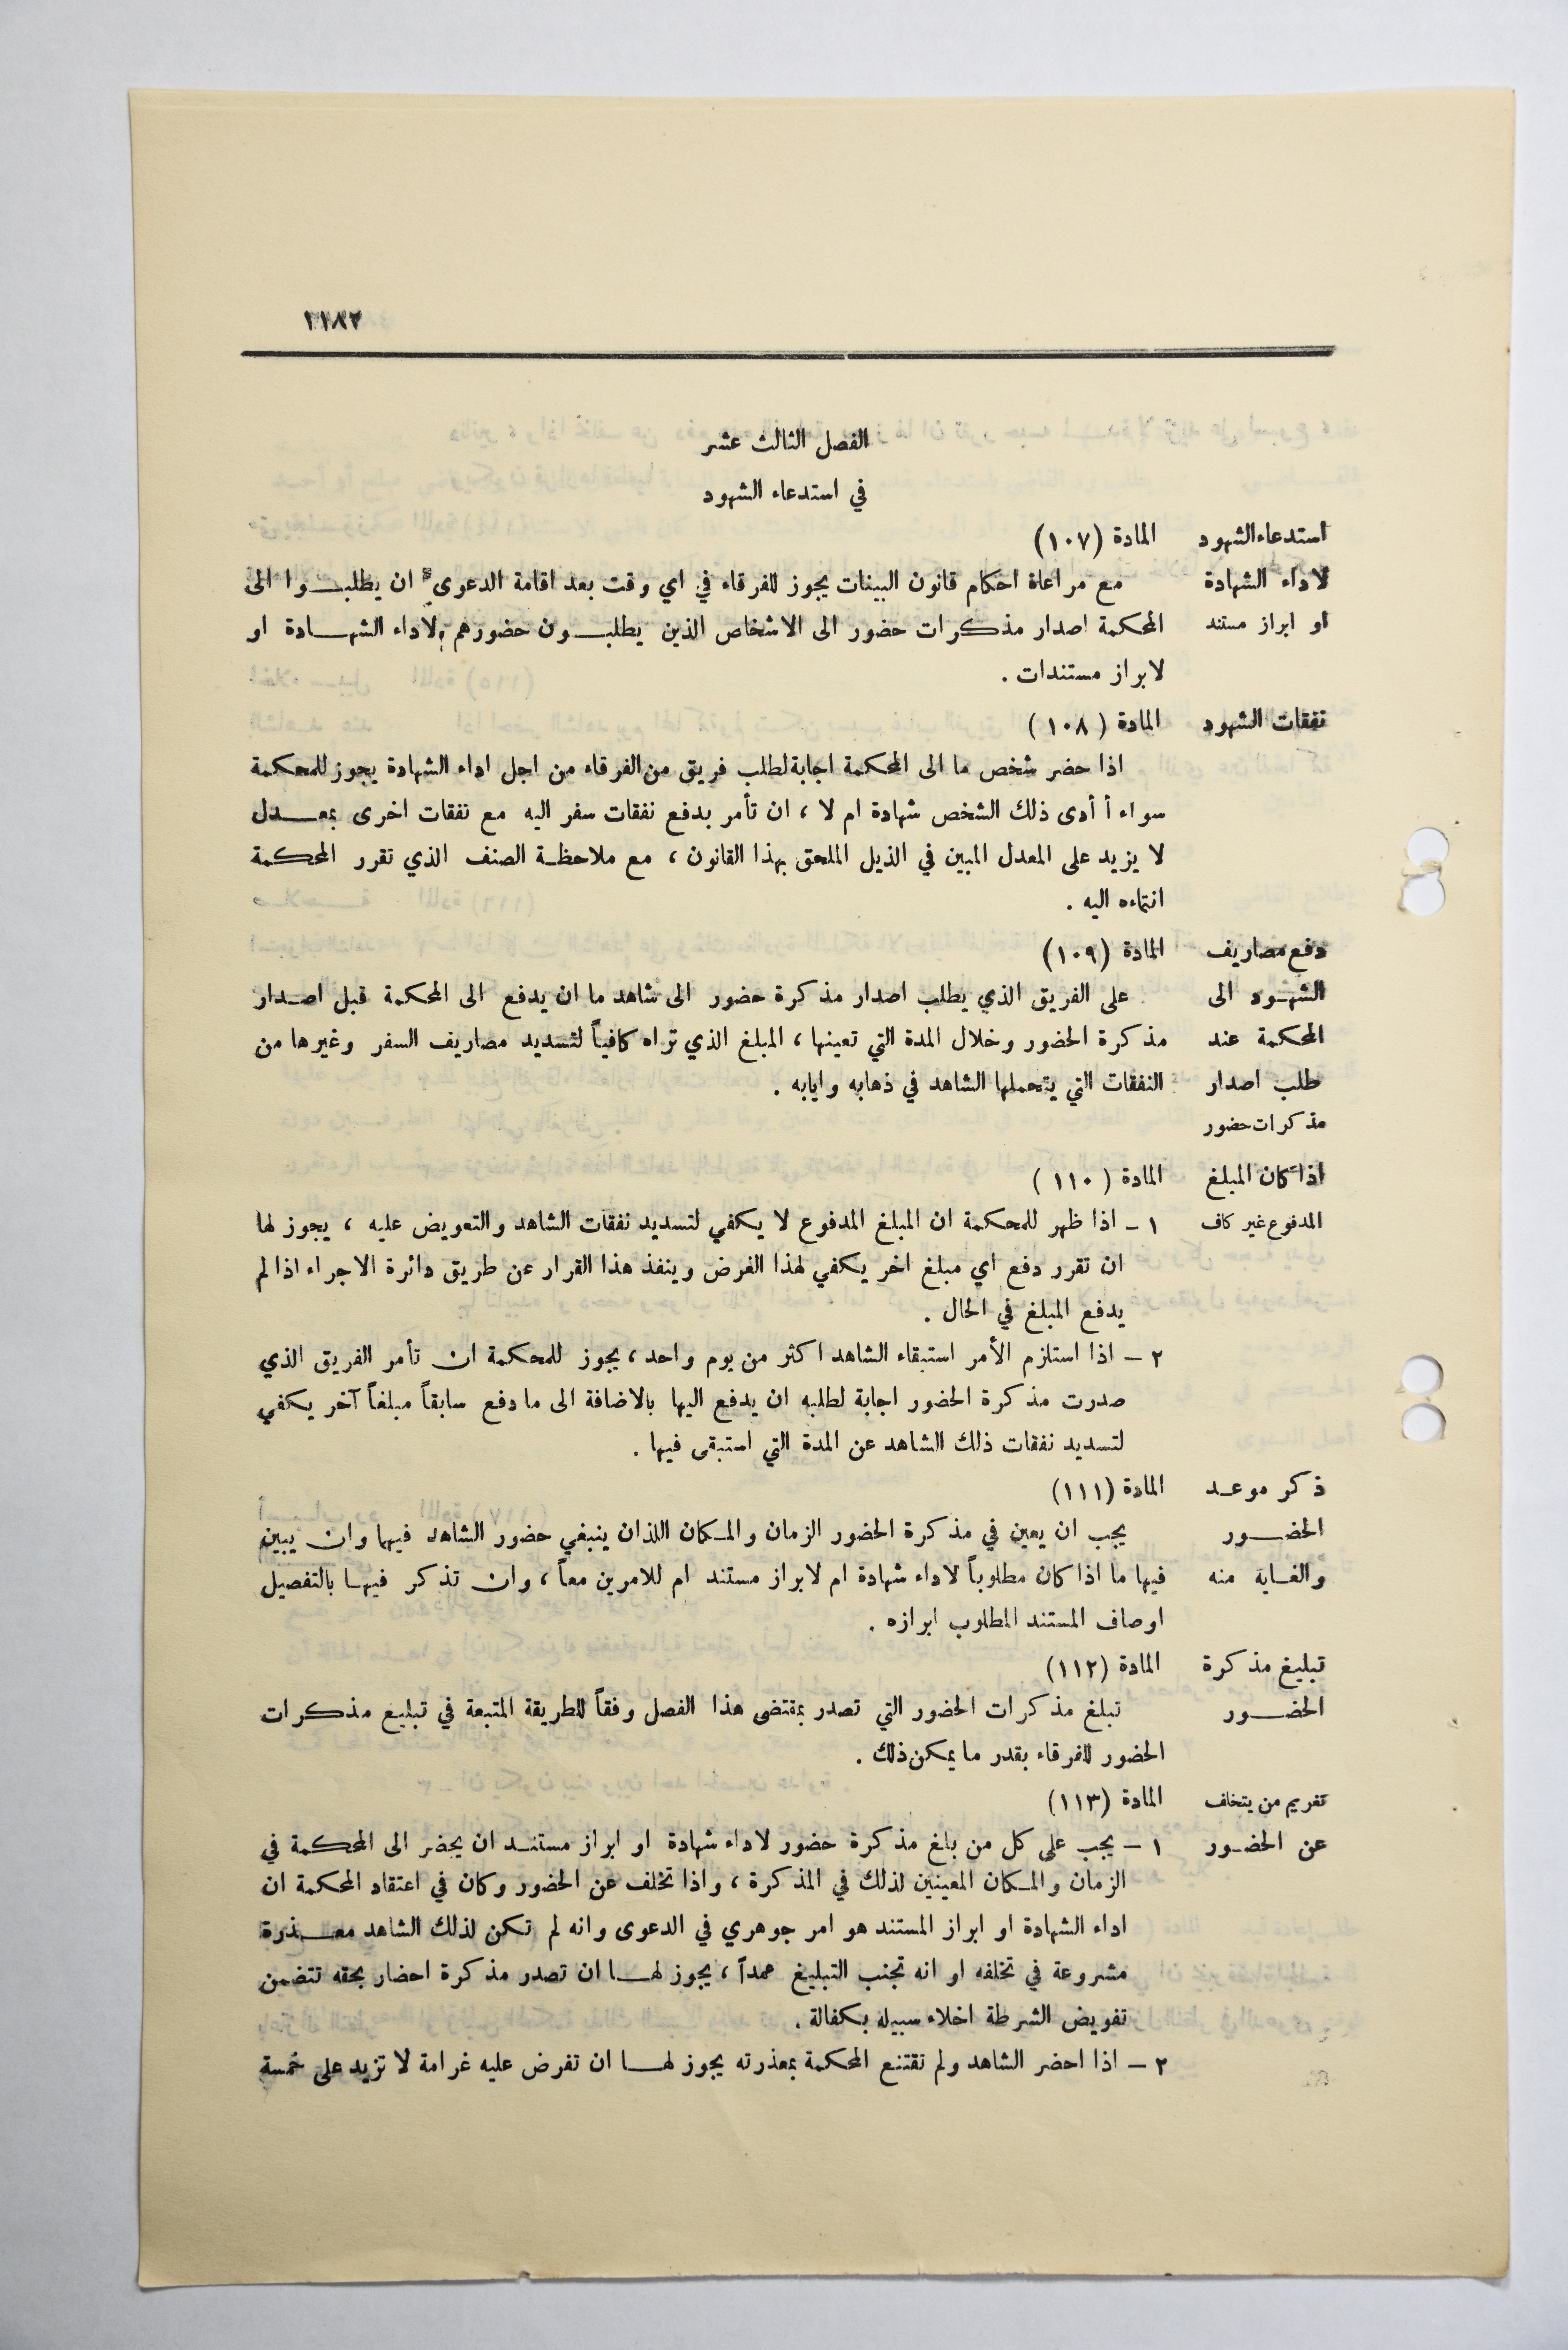 ٢١٨٢
الفصل الثالث عشر
في استدعاء الشهود
استدعاء الشهود المادة (١٠٧)
لاداء الشهادة مع مراعاة احكام قانون البينات يجوز للفرقاء في اي وقت بعد اقامة الدعوى ان يطلبوا الى
او ابراز مستند المحكمة اصدار مذكرات حضور الى الاشخاص الذين يطلبون حضورهم لاداء الشهادة او
لابراز مستندات .
نفقات الشهود المادة ( ١٠٨ )
اذا حضر شخص ما الى المحكمة اجابة لطلب فريق من الفرقاء من اجل اداء الشهادة يجوز للمحكمة
سواء أ أدى ذلك الشخص شهادة ام لا ، ان تأمر بدفع نفقات سفر اليه مع نفقات اخرى بمعدل
لا يزيد على المعدل المبين في الذيل الملحق بهذا القانون ، مع ملاحظة الصنف الذي تقرر المحكمة
انتماءه اليه .
دفع مصاريف المادة (١٠٩)
الشهود الى على الفريق الذي يطلب اصدار مذكرة حضور الى شاهد ما ان يدفع الى المحكمة قبل اصدار
المحكمة عند مذكرة الحضور وخلال المدة التي تعينها ، المبلغ الذي تراه كافياً لتسديد مصاريف السفر وغيرها من
طلب اصدار النفقات التي يتحملها الشاهد في ذهابه وايابه .
مذكرات حضور
اذا كان المبلغ المادة ( ١١٠ )
المدفوع غير كاف ١ – اذا ظهر للمحكمة ان المبلغ المدفوع لا يكفي لتسديد نفقات الشاهد والتعويض عليه ، يجوز لها
ان تقرر دفع اي مبلغ اخر يكفي لهذا الغرض وينفذ هذا القرار عن طريق دائرة الاجراء اذا لم
يدفع المبلغ في الحال .
٢ – اذا استلزم الأمر استبقاء الشاهد اكثر من يوم واحد ، يجوز للمحكمة ان تأمر الفريق الذي
صدرت مذكرة الحضور اجابة لطلبه ان يدفع اليها بالاضافة الى ما دفع سابقاً مبلغاً آخر يكفي
لتسديد نفقات ذلك الشاهد عن المدة التي استبقى فيها .
ذكر موعد المادة (١١١)
الحضور يجب ان يعين في مذكرة الحضور الزمان والمكان اللذان ينبغي حضور الشاهد فيهما وان يبين
والغاية منه فيها ما اذا كان مطلوباً لاداء شهادة ام لابراز مستند ام للامرين معاً ، وان تذكر فيها بالتفصيل
اوصاف المستند المطلوب ابرازه .
تبليغ مذكرة المادة (١١٢)
الحضور تبلغ مذكرات الحضور التي تصدر بمقتضى هذا الفصل وفقاً للطريقة المتبعة في تبليغ مذكرات
الحضور للفرقاء بقدر ما يمكن ذلك .
تغريم من يتخلف المادة (١١٣)
عن الحضور ١ – يجب على كل من بلغ مذكرة حضور لاداء شهادة او ابراز مستند ان يحضر الى المحكمة في
الزمان والمكان المعينين لذلك في المذكرة ، واذا تخلف عن الحضور وكان في اعتقاد المحكمة ان
اداء الشهادة او ابراز المستند هو امر جوهري في الدعوى وانه لم تكن لذلك الشاهد معذرة
مشروعة في تخلفه او انه تجنب التبليغ عمداً ، يجوز لها ان تصدر مذكرة احضار بحقه تتضمن
تفويض الشرطة اخلاء سبيله بكفالة .
٢ – اذا احضر الشاهد ولم تقتنع المحكمة بمعذرته يجوز لها ان تفرض عليه غرامة لا تزيد على خمسة